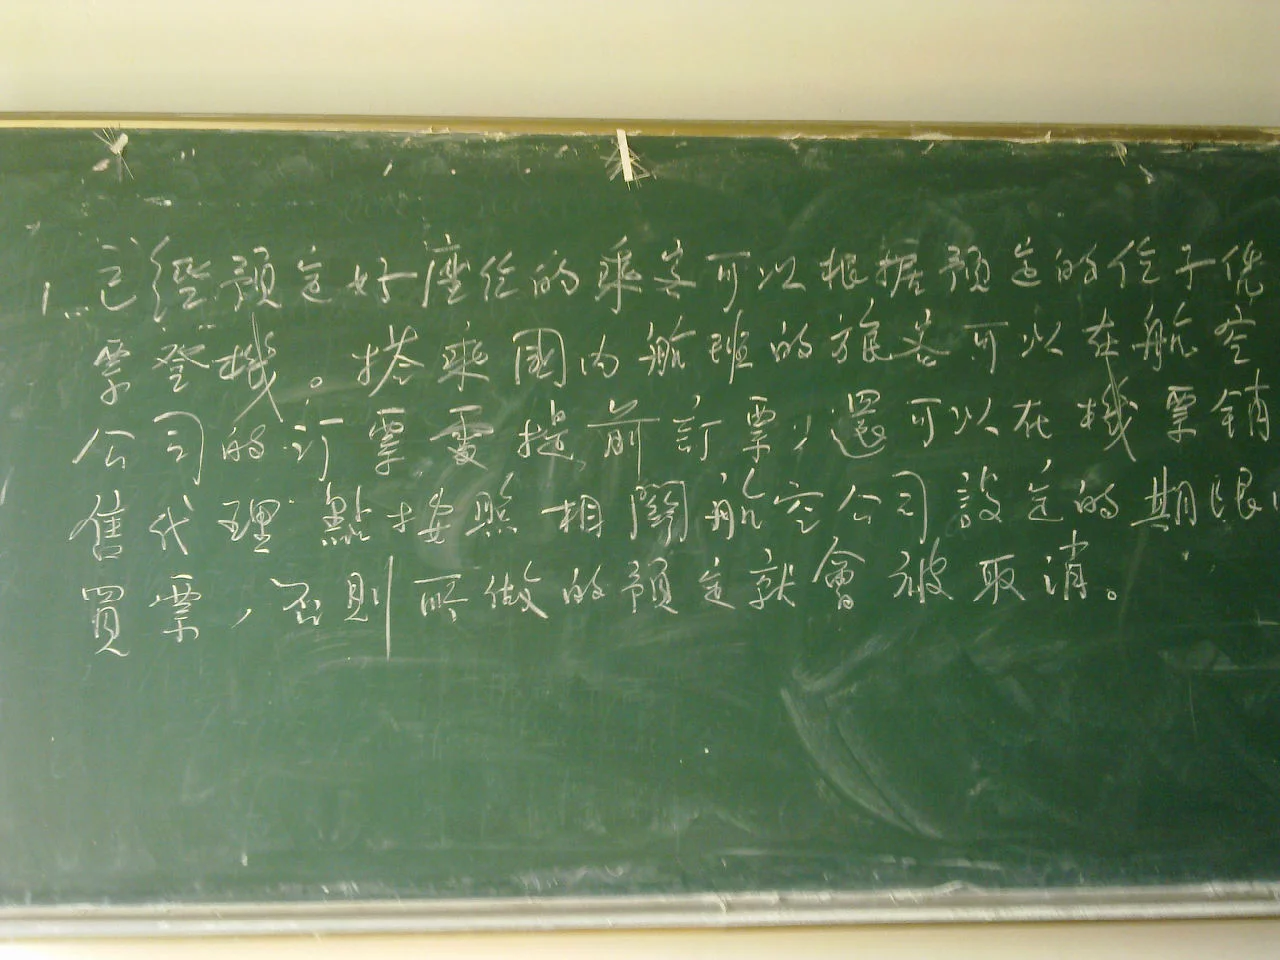 1. 已經預定好座位的乘客可以根據預定的位子凭
票登機。搭乘國內航班的旅客可以在航空
公司的訂票處提前訂票，還可以在機票銷
售代理點按照相關航空公司設定的期限
買票，否則所做的預定就會被取消。